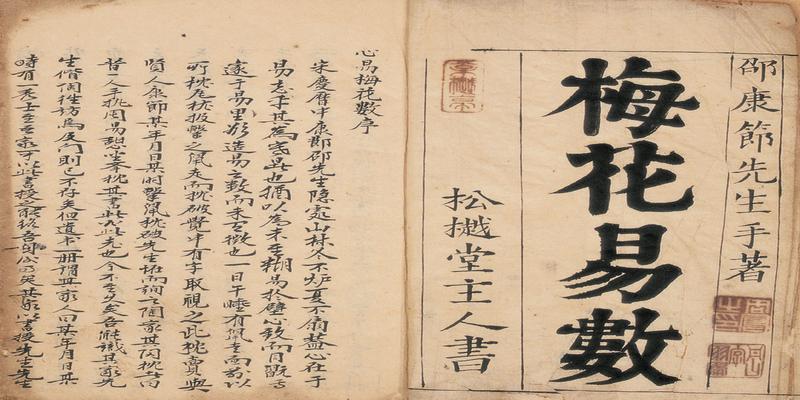 邵康節先生手著
梅花易數
松樾堂主人書
心易梅花數序
宋慶曆中康節邵先生隱處山林冬不炉夏不扇蓋心在于
易忘乎其為寒暑也猶以為未至糊易於壁心致而目玩焉
邃于易理欲造易之數而未有徵也一日午睡有鼠走而前以
所枕瓦枕投擊之鼠走而枕破覺中有字取視之此枕賣與
賢人康節某年月日某時擊鼠枕破先生怪而詢之陶家其陶枕者曰
昔一人手执周易憩坐举枕其書必此老也今不至久矣吾能識其家先
生偕陶往訪焉及門則已不存矣但遺书一册謂其家人曰某年月日某
時有一秀士至吾家可以此書授之能終吾矣其家以書授先生先生